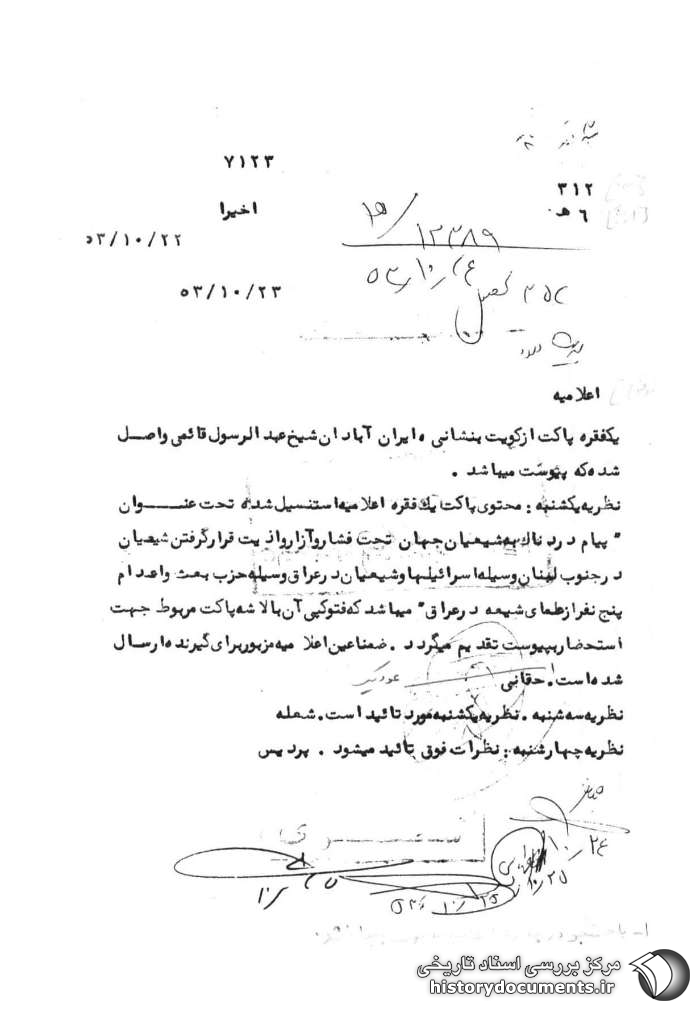 ۷۱۲۳
۳۱۲
۶ ﻫ
اخیرا
۱۵/۱۲۳۸۹
۵۳/۱۰/۲۲
۵۳/۱۰/۲۳
اعلامیه
یکفقره پاکت ازکویت بنشانی ه ایران آبادان شیخ عبدالرسول قائمی واصل
شده که پیوست میباشد .
نظریه یکشنبه : محتوی پاکت یك فقره اعلامیه استنسیل شده تحت عنوان
" پیام دردناك به شیعیان جهان تحت فشاروآزارواذیت قرارگرفتن شیعیان
درجنوب لبنان وسیله اسرائیلیها وشیعیان درعراق وسیله حزب بعث واعدام
پنج نفرازعلمای شیعه درعراق " میباشد که فتوکپی آن بالاشه پاکت مربوط جهت
استحضار بپیوست تقدیم میگردد . ضمناعین اعلامیه مزبوربرای گیرنده ارسال
شده است . حقانی
نظریه سه شنبه . نظریه یکشنبه مورد تائید است . شعله
نظریه چهارشنبه : نظرات فوق تائید میشود . پردیس
ســـری
۱۰/۲۴
۱۰/۲۵
مرکز بررسی اسناد تاریخی
historydocuments.ir